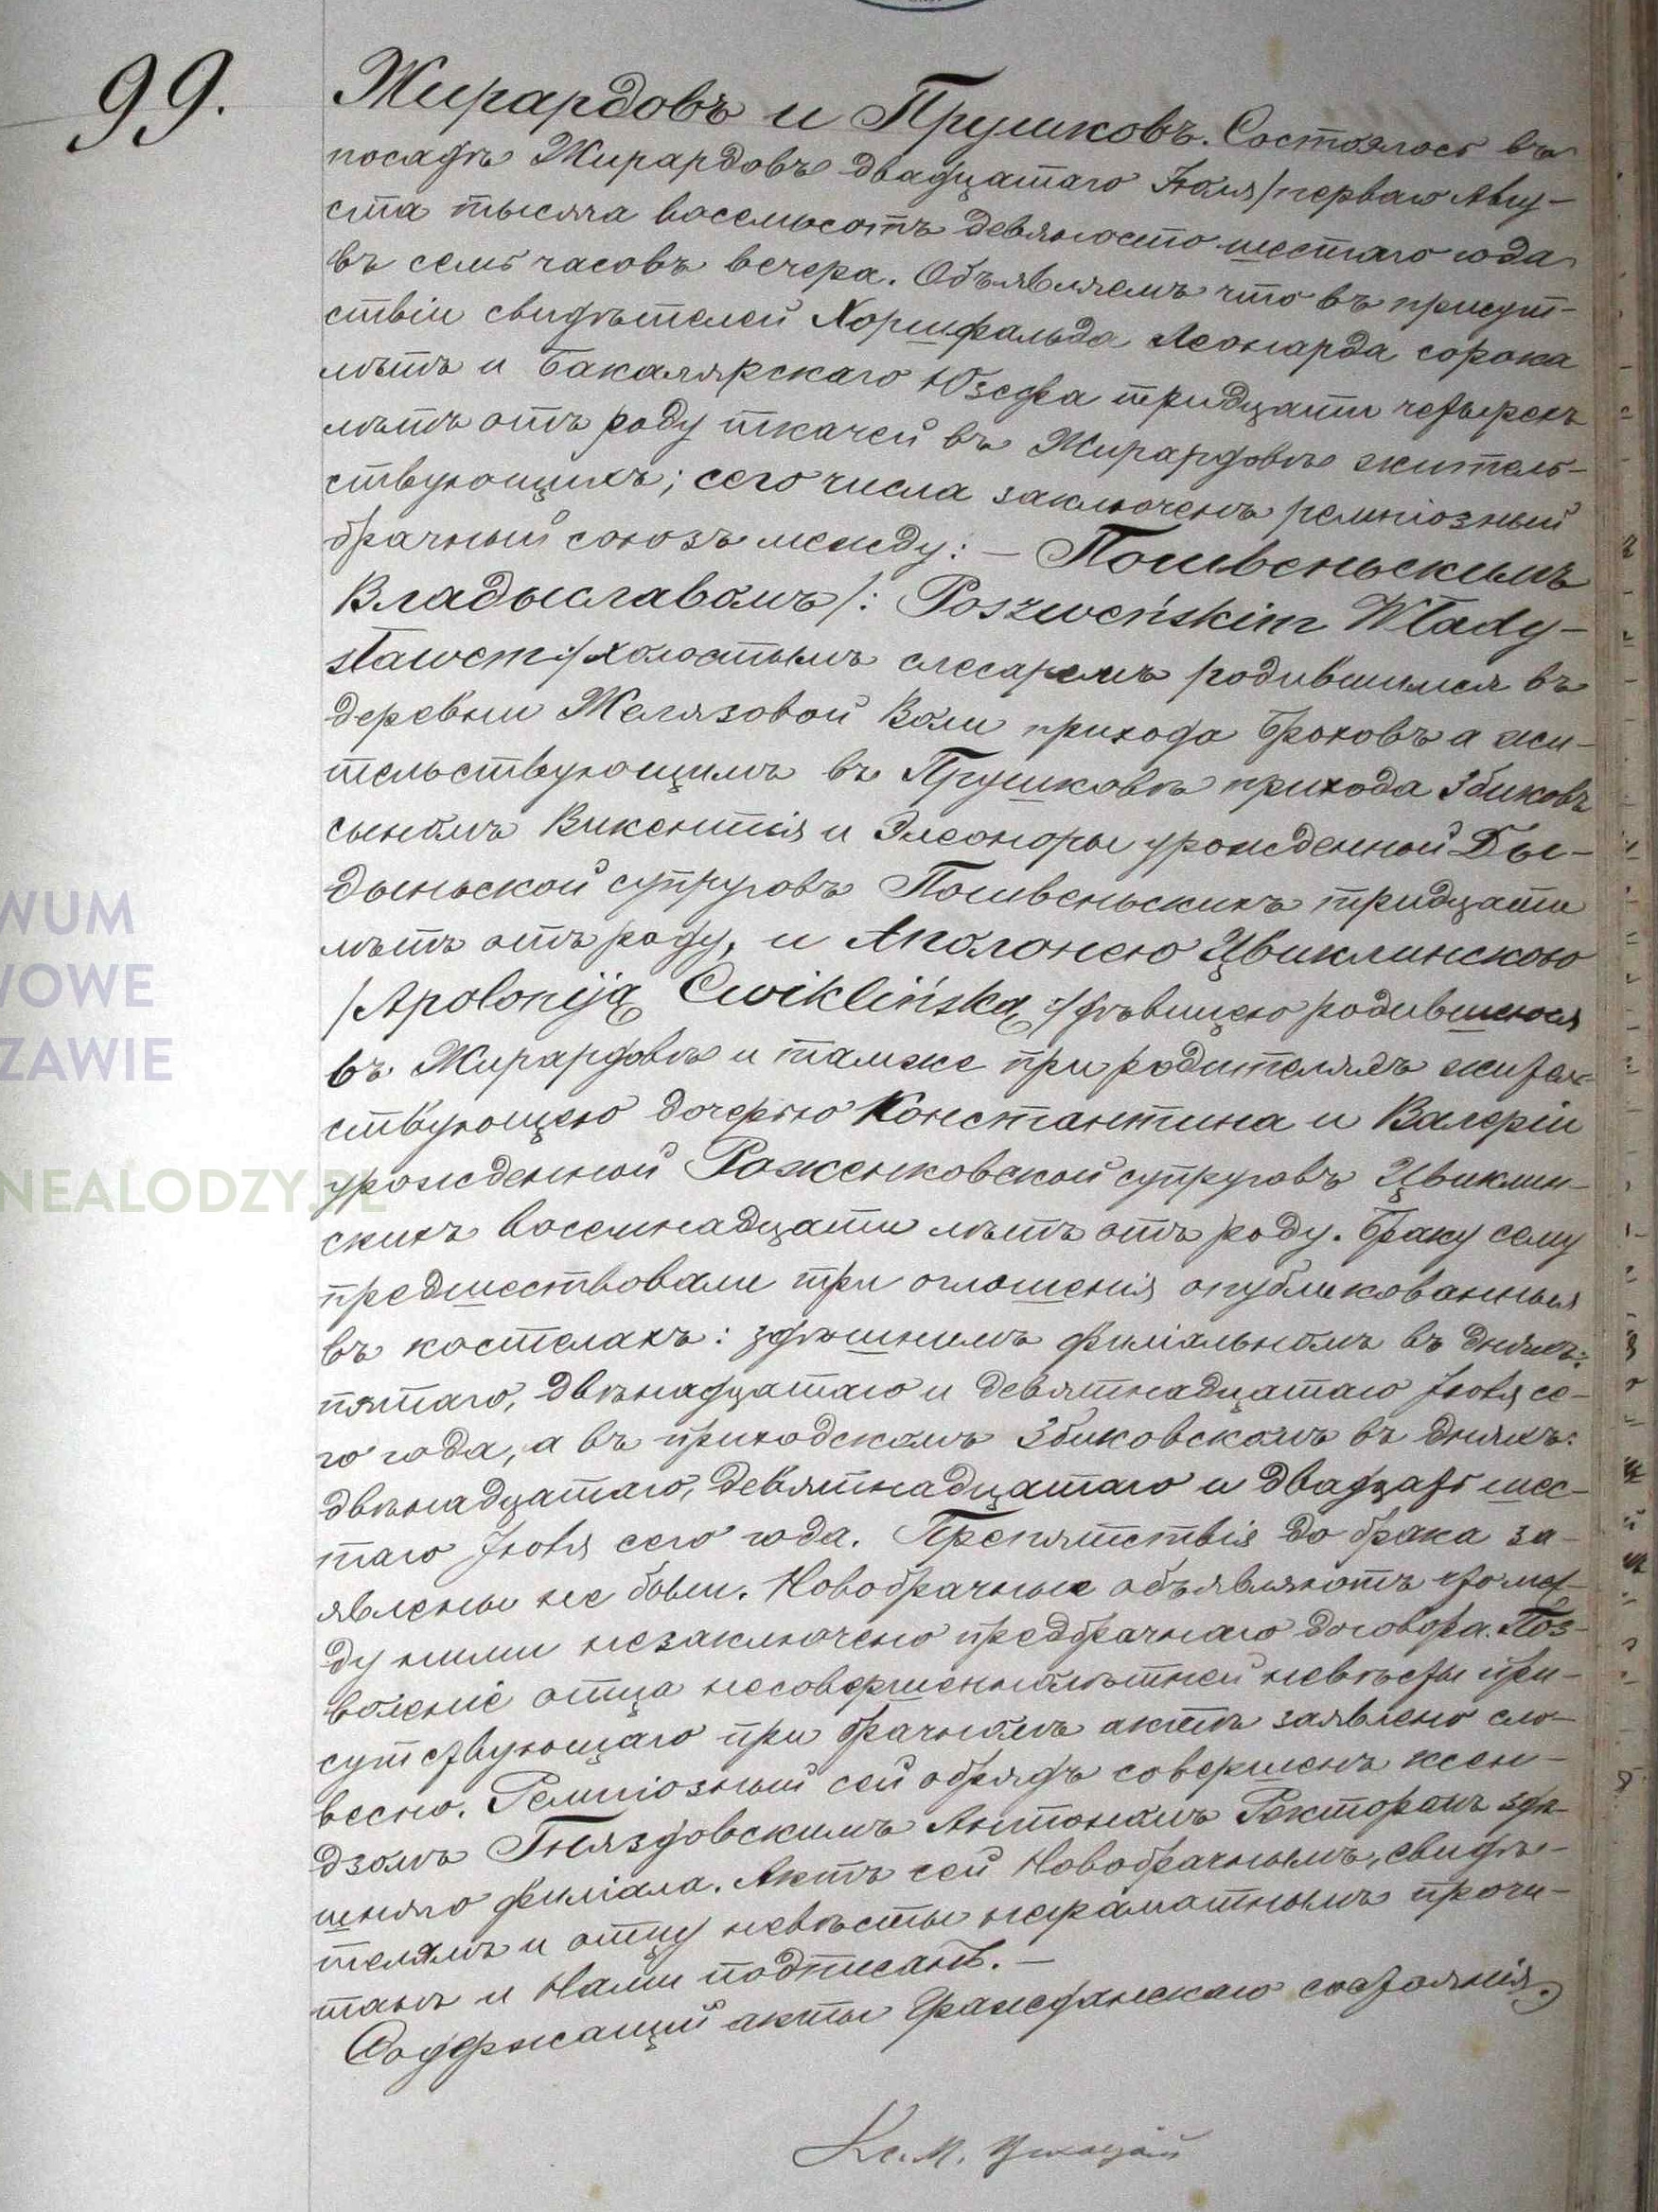 99.
Жирардовъ и Прушковъ. Состоялось въ
посадѣ Жирардовѣ двадцатаго Іюля/перваго Авгу-
ста тысяча восемьсотъ девяносто шестаго года
въ семь часовъ вечера. Объявляемъ что въ присут-
ствіи свидѣтелей Хоришфальда Леонарда сорока
лѣтъ и Бакалярскаго Юзефа тридцати четырехъ
лѣтъ отъ роду ткачей въ Жирардовѣ житель-
ствующихъ; сего числа заключенъ религіозный
брачный союзъ между: — Пошвеньскимъ
Владыславомъ /: Poszweńskim Włady-
sławem :/ холостымъ слесаремъ родившимся въ
деревни Желязовой Воли прихода Броховъ а жи-
тельствующимъ въ Прушковѣ прихода Збиковъ
сыномъ Викентія и Элеоноры урожденной Ды-
дыньской супруговъ Пошвеньскихъ тридцати
лѣтъ отъ роду, и Аполонею Цвиклинскою
/Apoloniją Cwiklińską :/ дѣвицею родившеюся
въ Жирардовѣ и тамже при родителяхъ житель-
ствующею дочерью Константина и Валеріи
урожденной Роженковской супруговъ Цвиклин-
скихъ восемнадцати лѣтъ отъ роду. Браку сему
предшествовали три оглошенія опубликованныя
въ костелахъ: здѣшнимъ филіальномъ въ дняхъ:
пятаго, двѣнадцатаго и девятнадцатаго Іюля се-
го года, а въ приходскомъ Збиковскомъ въ дняхъ:
двѣнадцатаго, девятнадцатаго и двадцать шес-
таго Іюля сего года. Препятствія до брака за-
явлены не были. Новобрачные объявляютъ что меж-
ду ними незаключено предбрачнаго договора. Поз-
воленіе отца несовершеннолѣтней невѣсты при-
сутствующаго при брачномъ актѣ заявлено сло-
весно. Религіозный сей обрядъ совершенъ ксен-
дзомъ Гняздовскимъ Антономъ Ректоромъ здѣ-
шняго филіала. Актъ сей Новобрачнымъ, свидѣ-
телямъ и отцу невѣсты неграмотнымъ прочи-
танъ и Нами подписанъ. —
Содержащій акты Гражданскаго состоянія.
Кс. М.
WUM
WOWE
ZAWIE
NEALODZY.PL